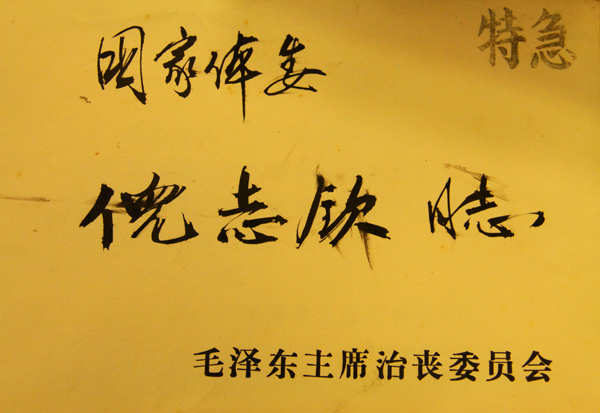 特急
国家体委
倪志钦 同志
毛泽东主席治丧委员会